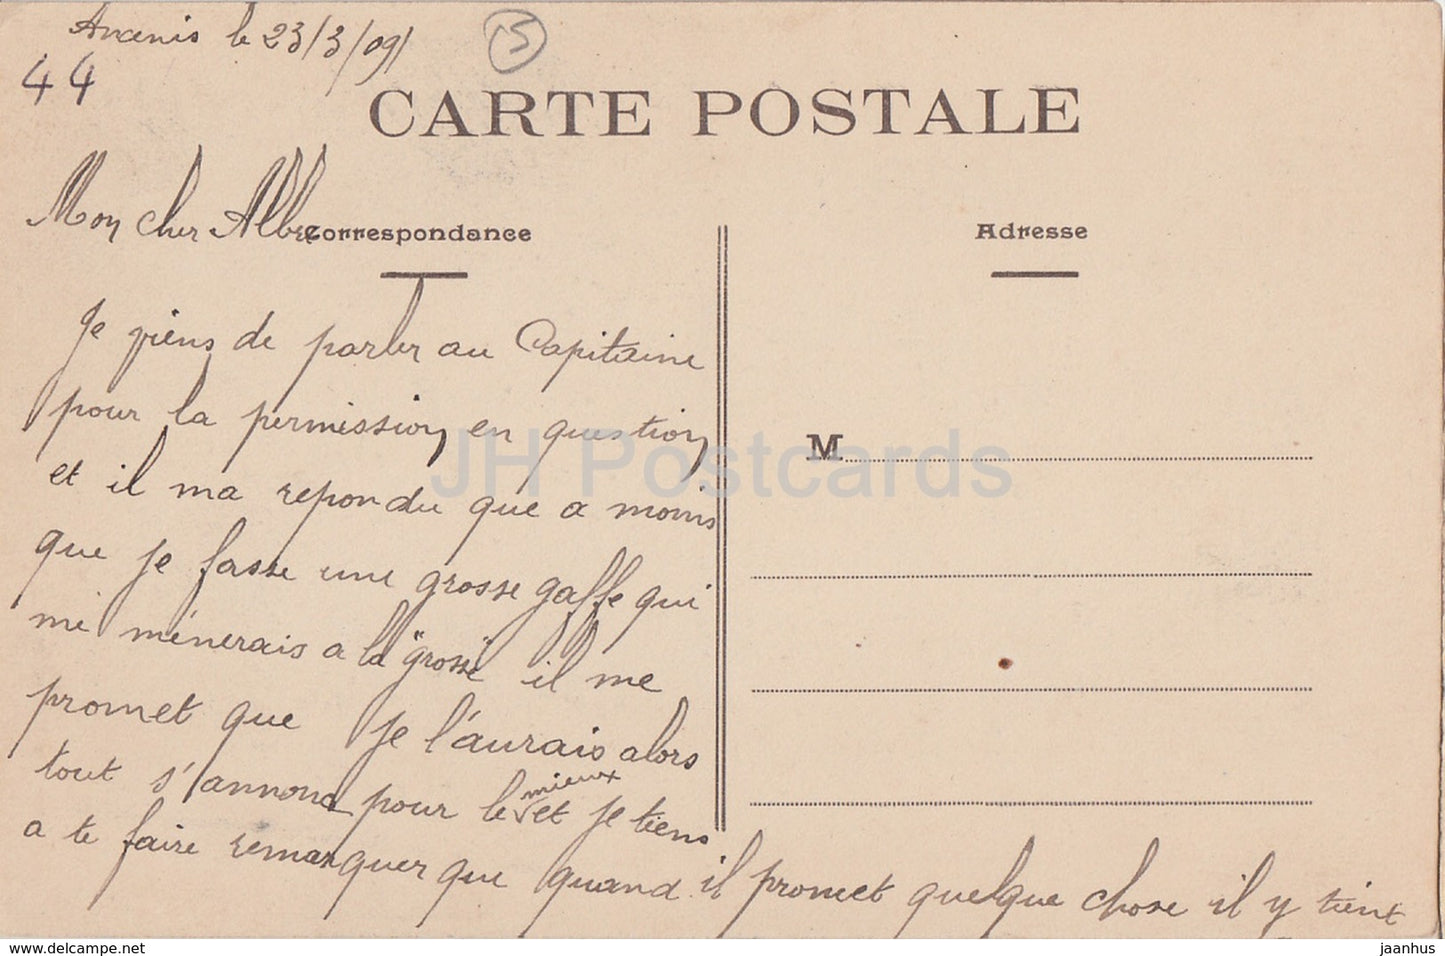 Ancenis le 23/3/09
15
44
CARTE POSTALE
Mon cher Albre
Correspondance
Adresse
Je viens de parler au Capitaine
pour la permission en question
et il ma repondu que a moins
que je fasse une grosse gaffe qui
me ménerais a la "grosse" il me
promet que je l'aurais alors
tout s'annonce pour le mieux et je tiens
a te faire remarquer que quand il promet quelque chose il y tient
M
JH Postcards
www.delcampe.net
jaanhus